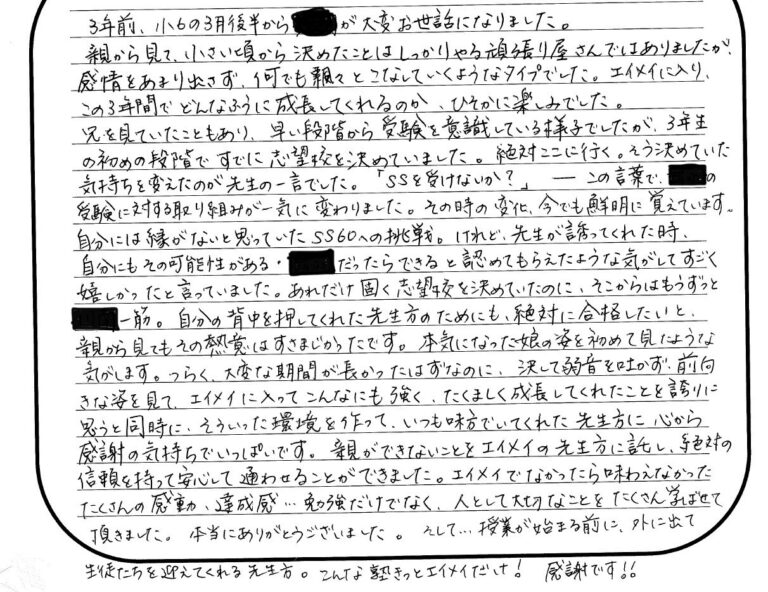 3年前、小6の3月後半から が大変お世話になりました。
親から見て、小さい頃から決めたことはしっかりやる頑張り屋さんではありましたが、
感情をあまり出さず、何でも親々とこなしていくようなタイプでした。エイメイに入り、
この3年間でどんなふうに成長してくれるのか、ひそかに楽しみでした。
兄を見ていたこともあり、早い段階から受験を意識している様子でしたが、3年生
の初めの段階ですでに志望校を決めていました。絶対ここに行く。そう決めていた
気持ちを変えたのが先生の一言でした。「SSを受けないか?」―この言葉で、 の
受験に対する取り組みが一気に変わりました。その時の変化、今でも鮮明に覚えています。
自分には縁がないと思っていたSS60への挑戦。けれど、先生が誘ってくれた時、
自分にもその可能性がある・ だったらできると認めてもらえたような気がしてすごく
嬉しかったと言っていました。あれだけ固く志望校を決めていたのに、そこからはもうずっと
一筋。自分の背中を押してくれた先生方のためにも、絶対に合格したいと、
親から見てもその熱意はすさまじかったです。本気になった娘の姿を初めて見たような
気がします。つらく、大変な期間が長かったはずなのに、決して弱音を吐かず、前向
きな姿を見て、エイメイに入ってこんなにも強く、たくましく成長してくれたことを誇りに
思うと同時に、そういった環境を作って、いつも味方でいてくれた先生方に心から
感謝の気持ちでいっぱいです。親ができないことをエイメイの先生方に託し、絶対の
信頼を持って安心して通わせることができました。エイメイでなかったら味わえなかった
たくさんの感動、達成感…勉強だけでなく、人として大切なことをたくさん学ばせて
頂きました。本当にありがとうございました。そして…授業が始まる前に、外に出て
生徒たちを迎えてくれる先生方。こんな塾きっとエイメイだけ!感謝です!!